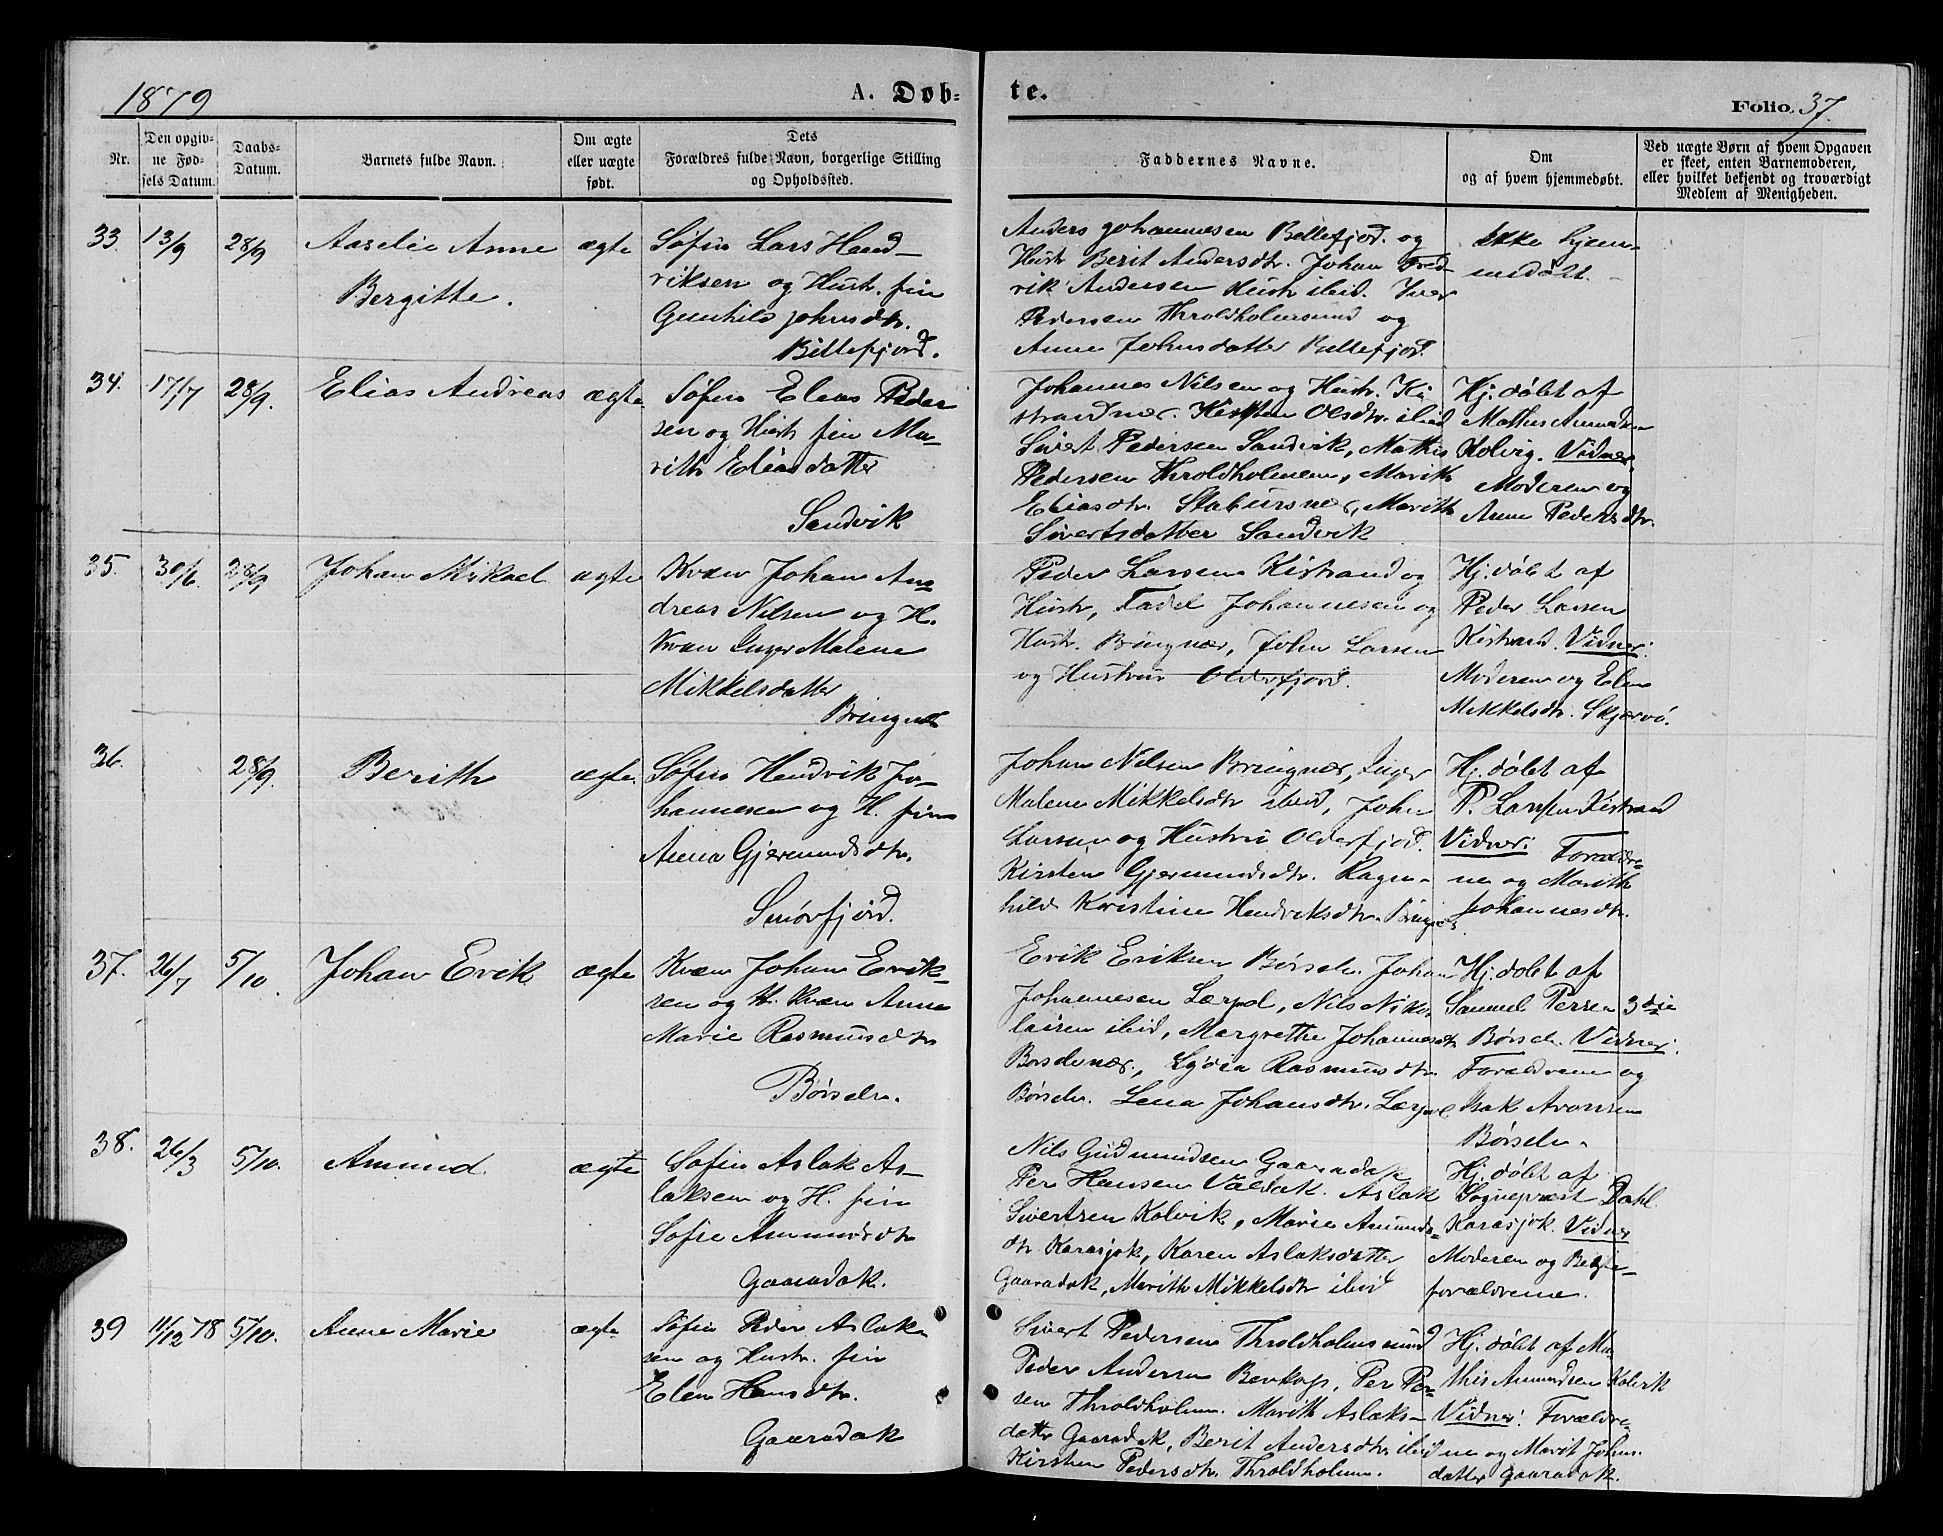 1879
A. Døb-
te.
Folio. 37.
Nr.
Den opgiv-
ne Fød-
sels Datum.
Daabs-
Datum.
Barnets fulde Navn.
Om ægte
eller uægte
født.
Dets
Forældres fulde Navn, borgerlige Stilling
og Opholdssted.
Faddernes Navne.
Om
og af hvem hjemmedøbt.
Ved uægte Børn af hvem Opgaven
er skeet, enten Barnemoderen,
eller hvilket bekjendt og troværdigt
Medlem af Menigheden.
33.
13/9
28/9
Aazelie Anne
Bergitte.
ægte
Søfin Lars Hend-
riksen og Hust. fin
Gunhild Johnsdtr.
Billefjord.
Anders Johannesen Billefjord. og
Hustr Berit Andersdtr. Johan Fred-
rik Andersen Hustr ibid. Iver
Pedersen Throldholmsund og
Anne Johnsdatter Billefjord.
Ikke hjem-
medøbt.
34.
17/7
28/9.
Elias Andreas
ægte
Søfin Elias Peder
sen og Hustr fin Ma-
rith Eliasdatter
Sandvik
Johannes Nilsen og Hustr. Ki
strandnær. Kirsten Olsdtr. ibid
Sivert Pedersen Sandvik, Mathis
Pedersen Throldholmen, Marith
Eliasdtr. Stabursnær, Marith
Sivertsdatter Sandvik
Hj. døbt af
Mathis Amundsen
Kolvig. Vidner
Moderen og
Anne Pedersdtr.
35.
30/6
28/9
Johan Mikael
ægte
Kvæn Johan An-
dreas Nilsen og H.
kvæn Inger Malene
Mikkelsdatter
Bringnæs
Peder Larsen Kistrand og
Hustr, Fadel Johannesen og
Hustr. Bringnær, John Larsen
og Hustru Olderfjord.
Hj. døbt af
Peder Larsen
Kistrand. Vidner:
Moderen og Elen
Mikkelsdtr. Skjærvö.
36.
28/9.
Berith
ægte.
Søfin Hendrik Jo-
hannesen og H. fin
Anna Gjermundsdtr.
Smörfjord.
Johan Nilsen Bringnær, Inger
Malene Mikkelsdtr ibid, John
Larsen og Hustru Olderfjord.
Kirsten Gjermundsdtr. Ragn-
hild Kristine Hendriksdtr. Bringnæs
Hj. døbt af
P. Larsen Kistrand
Vidner: Forældre-
ne og Marith
Johannesdtr.
37.
26/7
5/10.
Johan Erik
ægte
Kvæn Johan Erik-
sen og H. kvæn Anna
Marie Rasmusdtr
Børselv.
Erik Eriksen Börselv. Johan
Johannesen Lærpol, Nils Niko-
laisen ibid, Margrethe Johannesdtr
Borselvnær.,  Rasmusdtr
Börselv. Lena Johansdtr. Lærpol
Hj. døbt af
Samuel Persen 3die
Børselv. Vidner:
Forældrene og
Isak Aronsen
Børselv.
38.
26/3
5/10.
Amund.
ægte
Søfin Aslak As-
laksen og H. fin
Sofie Amundsdtr
Gaaradak.
Nils Gudmundsen Gaaradak
Per Hansen Valdak. Aslak
Sivertsen Kolvik, Marie Amunds-
dtr Karasjok, Karen Aslaksdatter
Gaaradak, Marith Mikkelsdtr ibid
Hj. døbt af
Sognepræst Dahl
Karasjok. Vidner
Moderen og Beste-
forældrene.
39
11/12 78
5/10.
Anne Marie
ægte
Søfin Peder Aslak-
sen og Hustr. fin
Elen Hansdtr.
Gaaradak
Sivert Pedersen Throldholmsund
Peder Andersen Bevkop, Per Per-
sen Throldholmen. Marith Aslaks-
datter Gaaradak, Berit Andersdtr ibid
Kirsten Pedersdtr. Throldholmen.
Hj. døbt af Ma-
this Amundsen Kolvik
Vidner: Forældre-
ne og Marit Johns-
datter Gaaradak.